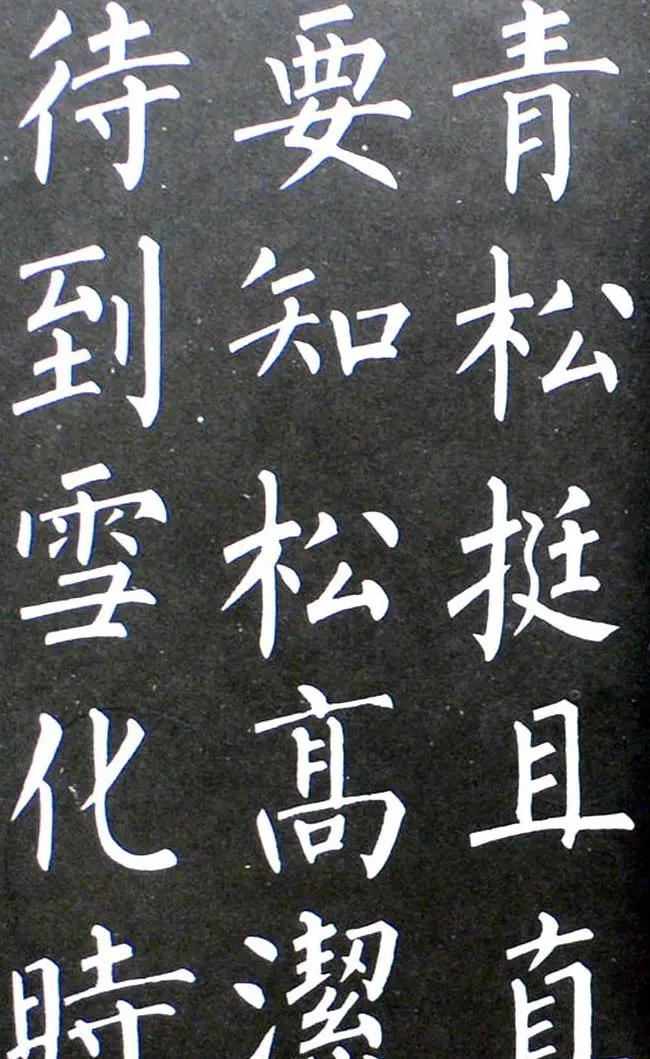 青松挺且直
要知松髙潔
待到雪化時